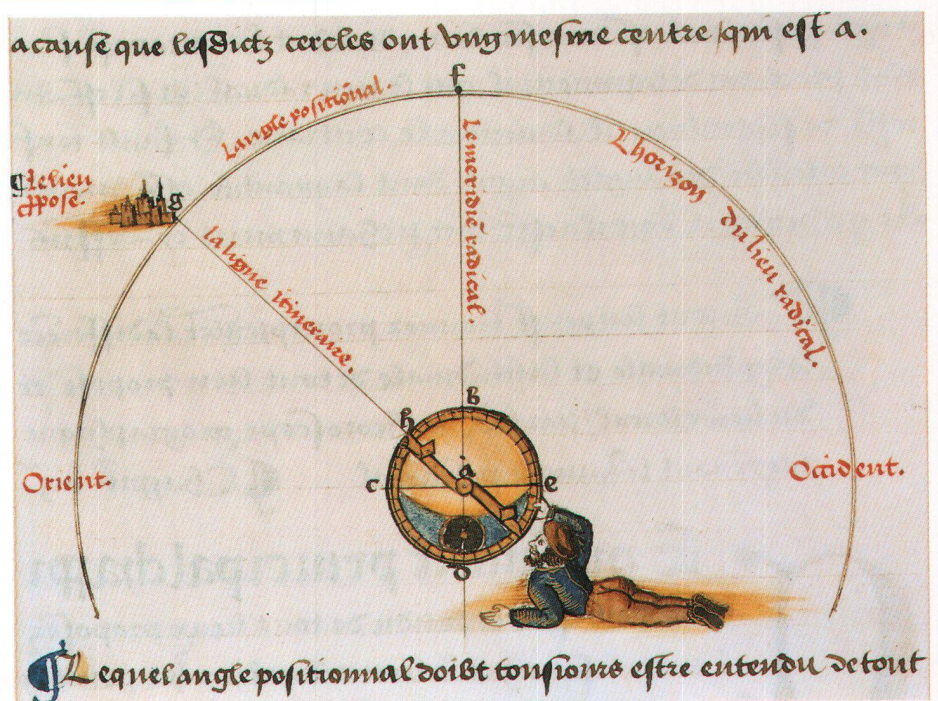 acause que lesdictz cercles ont vng mesme centre / qui est a.
f
Langle positional.
Lemeridie radical.
Lhorizon du lieu radical.
¶ Le lieu
ppose.
g
la ligne itineraire.
B
h
a
Orient.
c
e
Occident.
o
¶ Lequel angle positionnal doibt tousiours estre entendu de tout